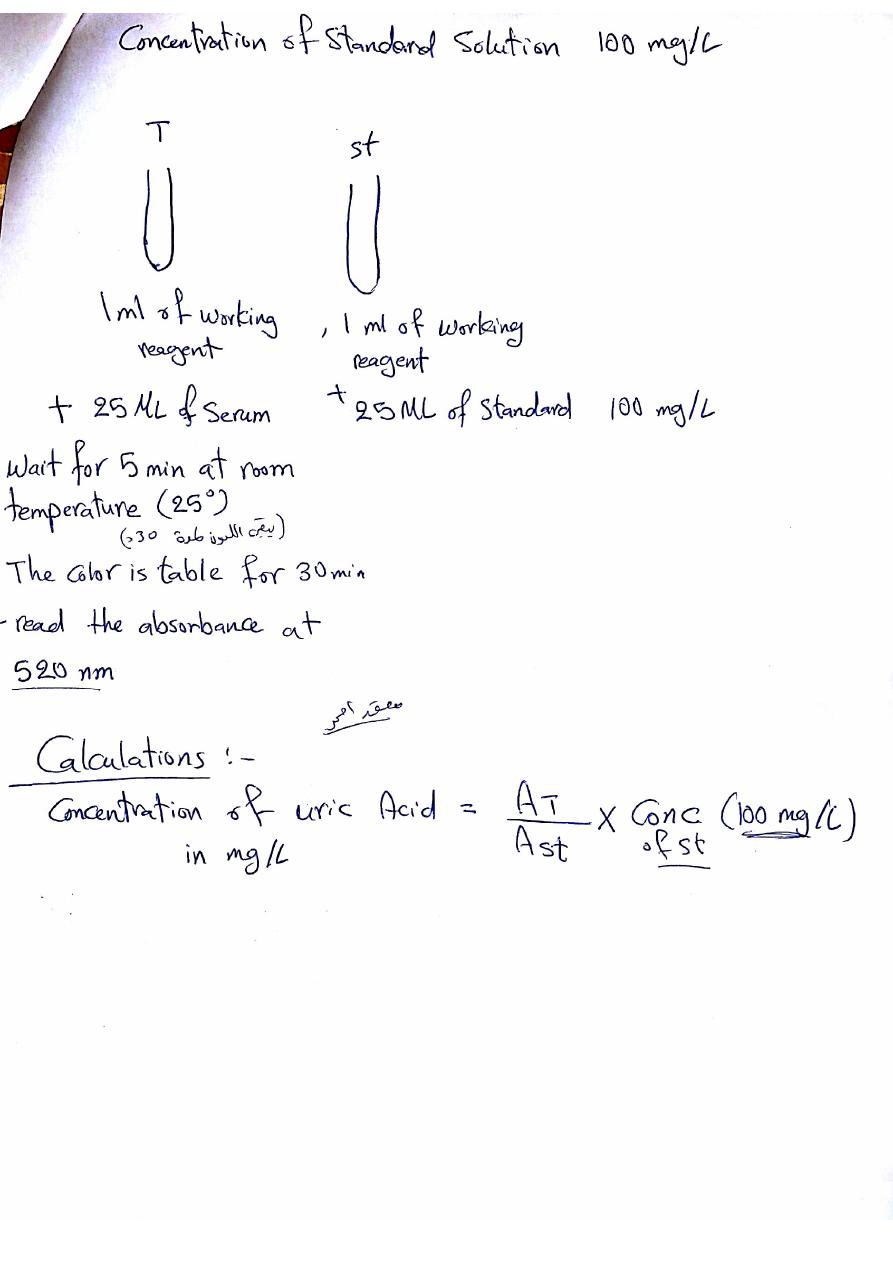 Concentration of Standard Solution 100 mg/L
T
st
1 ml of working
reagent
, 1 ml of working
reagent
+ 25 ML of Serum
+ 25 ML of Standard 100 mg/L
Wait for 5 min at room
temperature (25°)
30
The Color is table for 30 min
- read the absorbance at
520 nm
Calculations :-
Concentration of uric Acid = AT / Ast X Conc of st (100 mg/L)
in mg/L